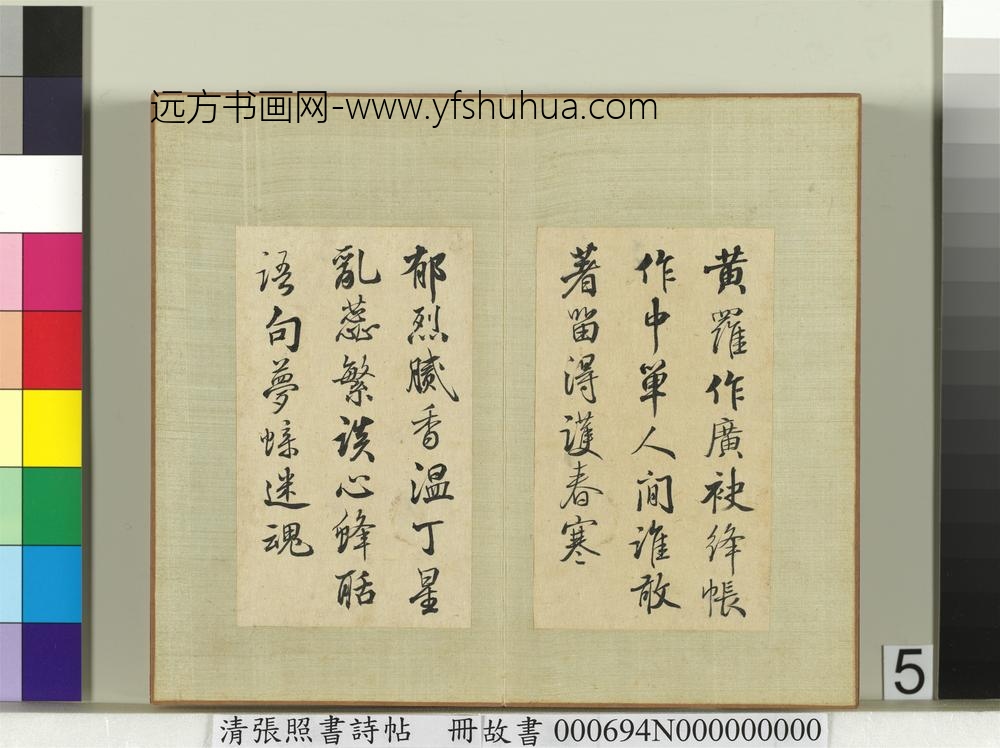 远方书画网-www.yfshuhua.com
黄羅作廣袂絳帳
作中單人間誰敢
著留得護春寒
郁烈膩香温丁星
亂蕊繁談心蜂聒
語句夢蝶迷魂
5
清張照書詩帖 冊故書 000694N000000000